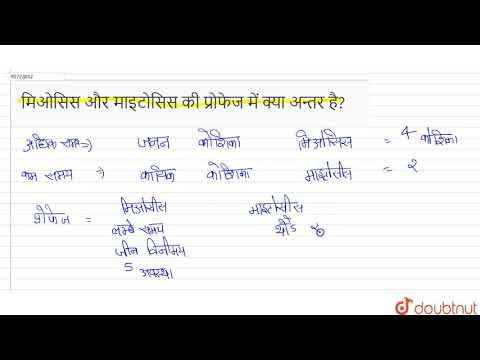 मिओसिस और माइटोसिस की प्रोफेज में क्या अन्तर है?
अधिक समय → जनन कोशिका मिओसिस = 4 कोशिका
कम समय → कायिक कोशिका माइटोसीस = २
प्रोफेज = मिओसीस माइटोसीस
लम्बे समय
जीन विनीमय
5 अवस्था
doubtnut